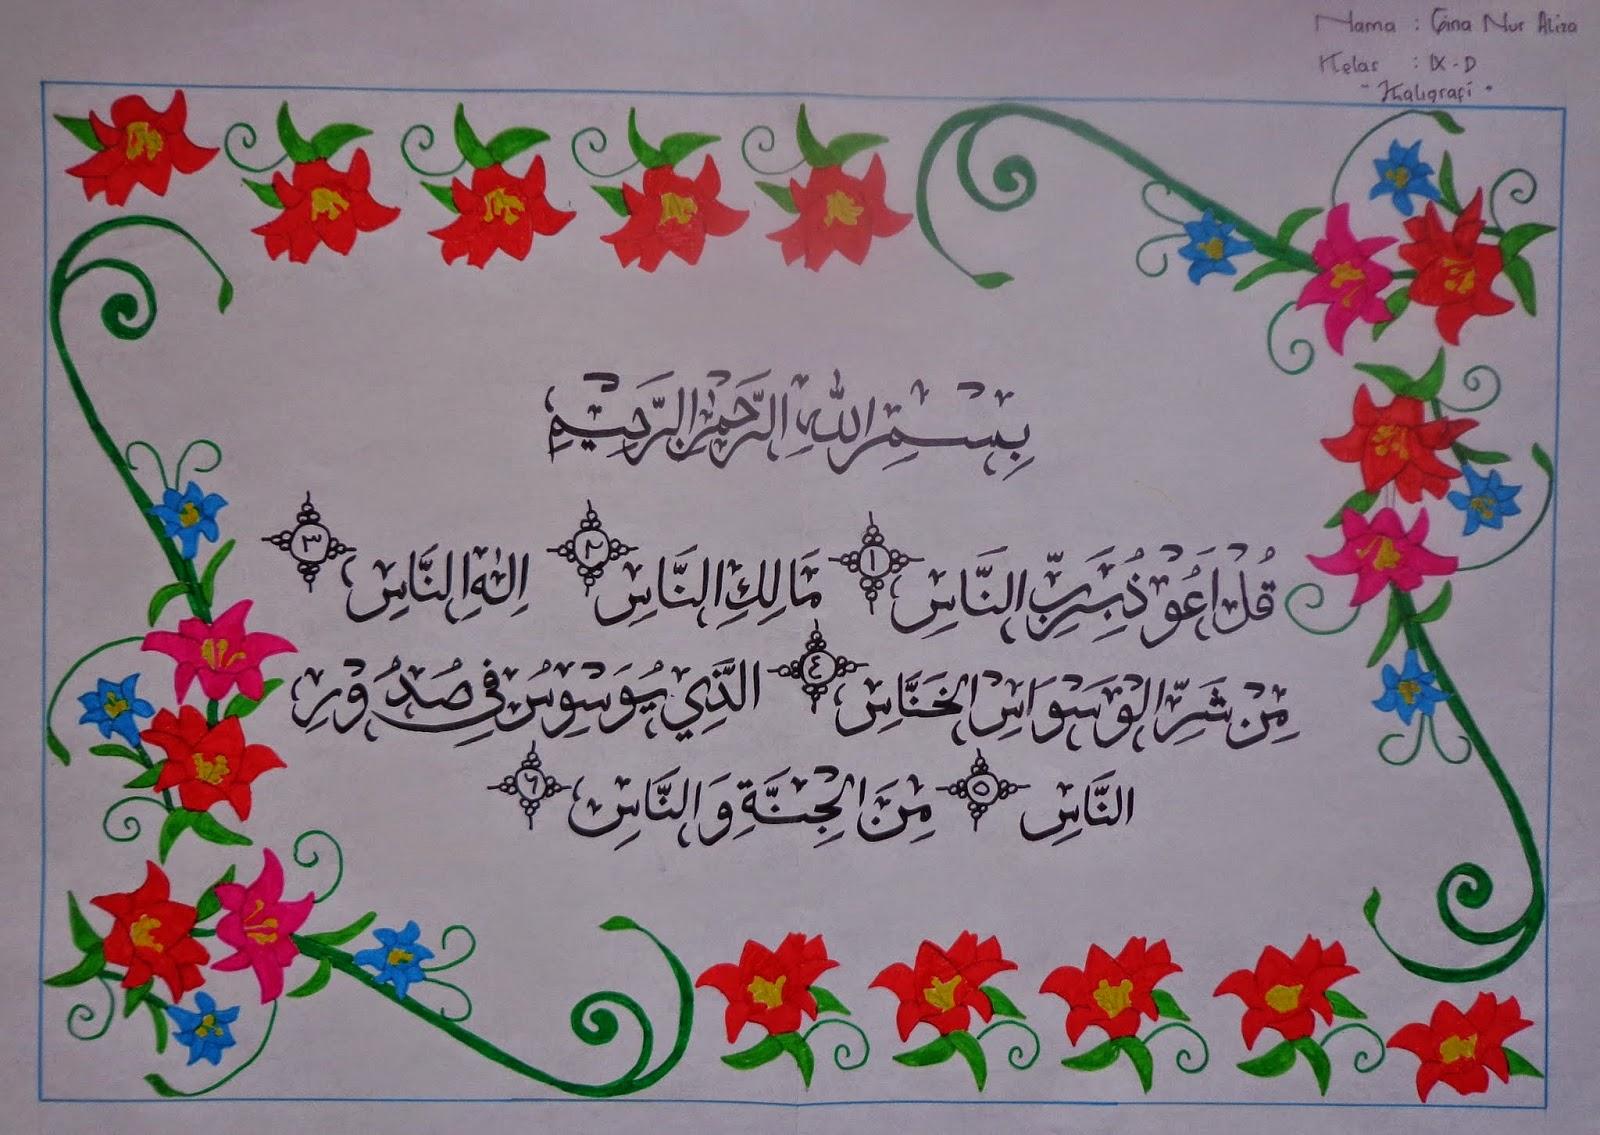 Nama : Gina Nur Aliza
Kelas : IX - D
- Kaligrafi -
بِسْمِ اللّٰهِ الرَّحْمٰنِ الرَّحِيْمِ
قُلْ اَعُوْذُ بِرَبِّ النَّاسِ ١ مَالِكِ النَّاسِ ٢ اِلٰهِ النَّاسِ ٣
مِنْ شَرِّ الْوَسْوَاسِ الْخَنَّاسِ ٤ الَّذِي يُوَسْوِسُ فِي صُدُوْرِ
النَّاسِ ٥ مِنَ الْجِنَّةِ وَالنَّاسِ ٦